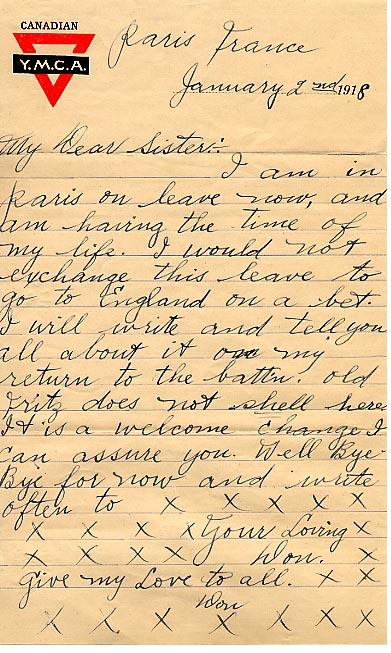 CANADIAN
Y.M.C.A.
Paris France
January 2nd 1918
My Dear Sister:-
I am in
Paris on leave now, and
am having the time of
my life. I would not
exchange this leave to
go to England on a bet.
I will write and tell you
all about it on my
return to the battn. old
Fritz does not shell here
It is a welcome change I
can assure you. Well Bye-
Bye for now and write
often to X X X X X
X X X X Your Loving X
X X X X Don. X
Give my Love to all. X X
Don
X X X X X X X